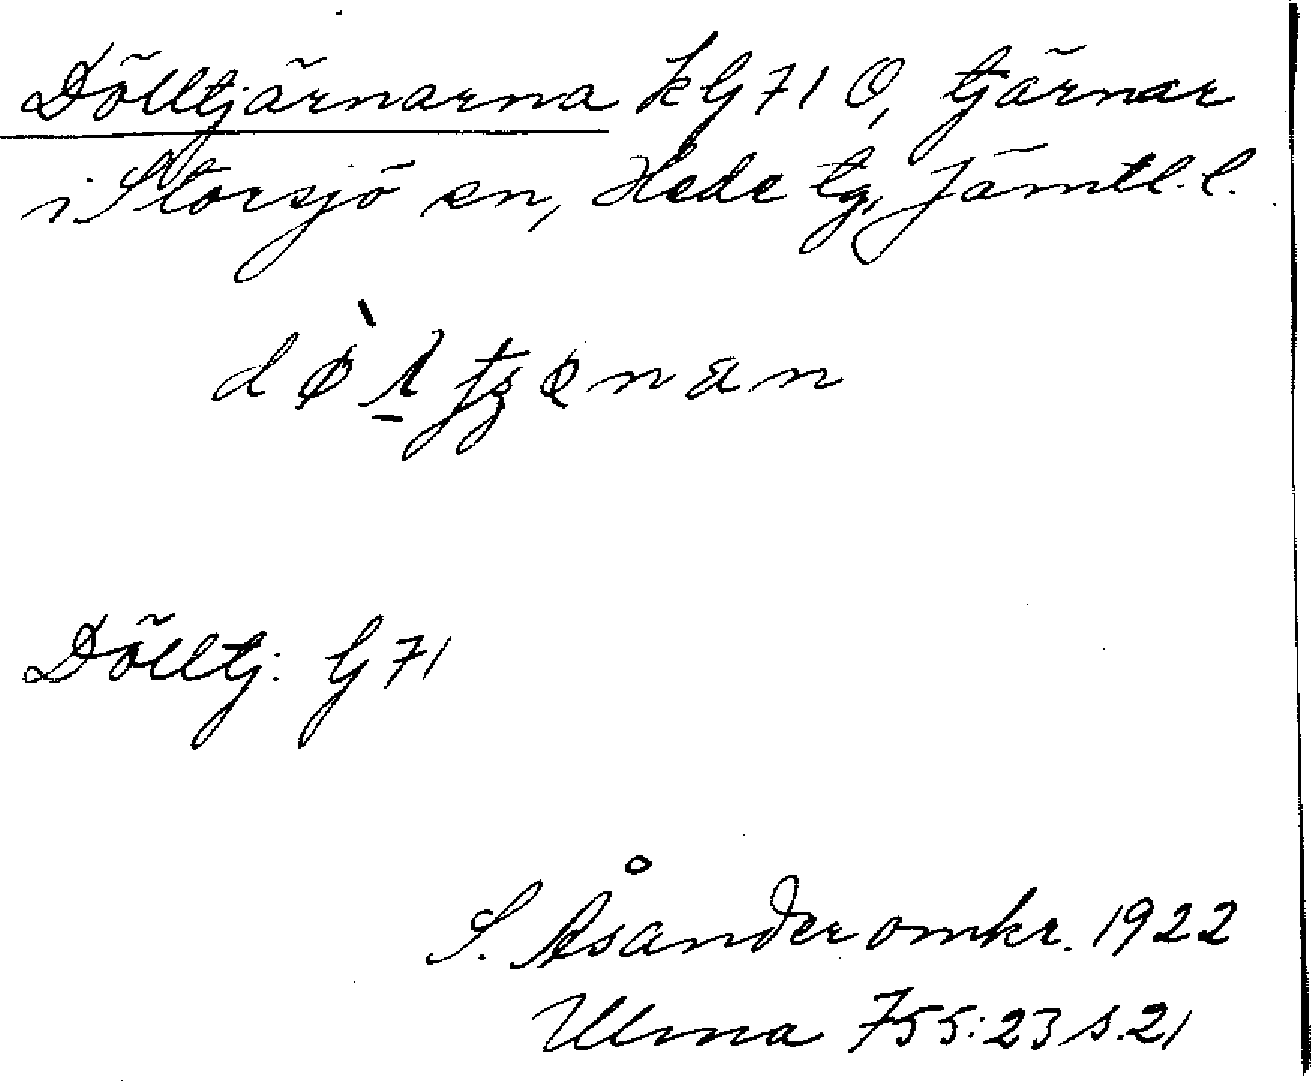 Dölltjärnarna kG 71 Ö, tjärnar
i Storsjö sn, Hede tg, Jämtl. l.
Dölltj: G 71
S. Åsander omkr. 1922
Ulma 755:23 s. 21